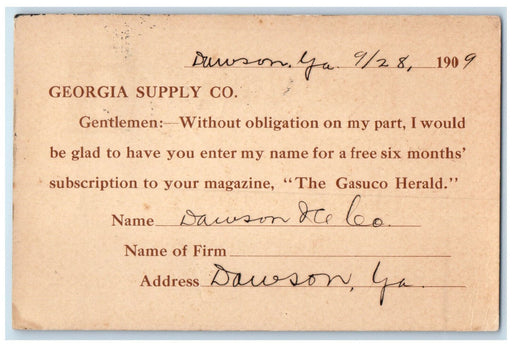 Dawson, Ga. 9/28, 1909
GEORGIA SUPPLY CO.
Gentlemen:—Without obligation on my part, I would
be glad to have you enter my name for a free six months'
subscription to your magazine, "The Gasuco Herald."
Name Dawson Ice Co.
Name of Firm
Address Dawson, Ga.